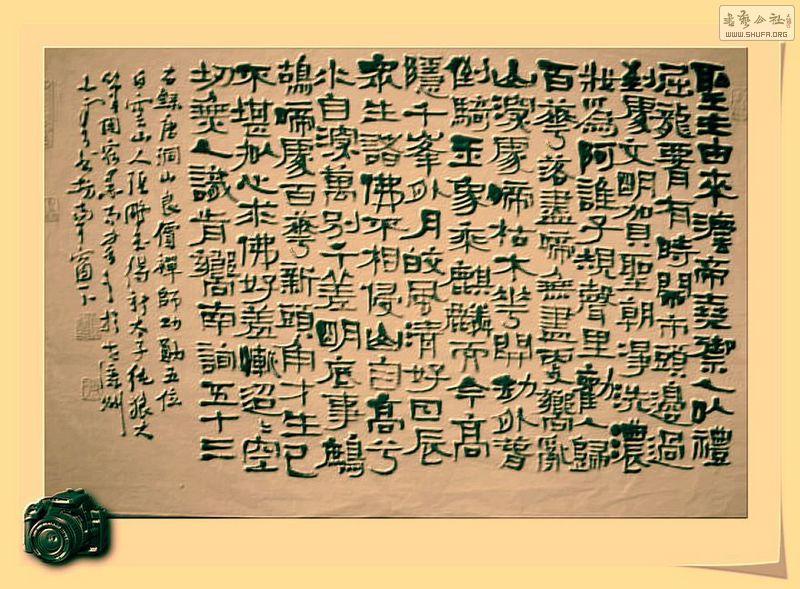 聖主由來濃帝堯禦人以禮
屈龍腰有時鬧市頭邊過
到處文明賀聖朝淨洗濃
粧為阿誰子規聲里勸人歸
百華落盡啼無盡更嚮亂
山深處啼枯木花開劫外春
倒騎玉象乘麒麟而今高
隱千峯外月皎風清好日辰
眾生諸佛不相侵山自高兮
水自深萬別千差明底事鷓
鴣啼處百華新頭角才生已
不堪擬心求佛好羞慚迢迢空
劫無人識肯嚮南詢五十三
右錄唐洞山良價禪師功勳五位
白雲山人張
書藝公社
WWW.SHUFA.ORG